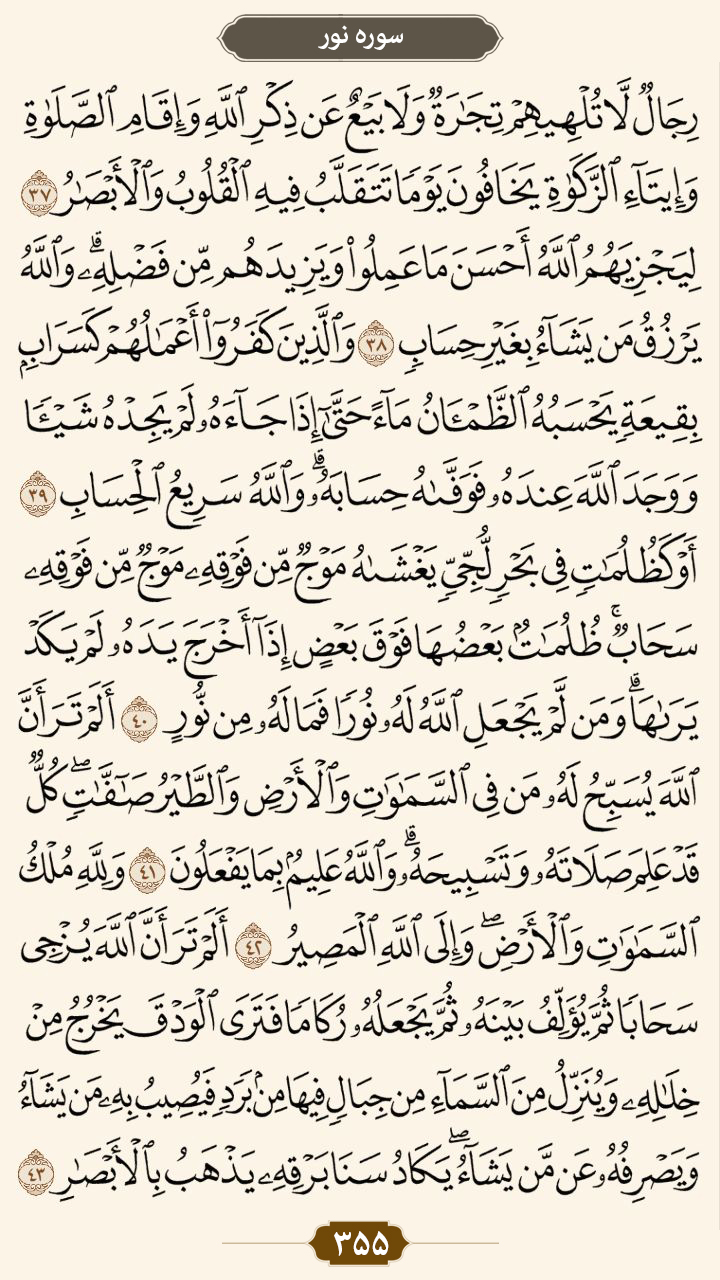 سوره نور
رِجَالٌ لَّا تُلْهِيهِمْ تِجَٰرَةٌ وَلَا بَيْعٌ عَن ذِكْرِ ٱللَّهِ وَإِقَامِ ٱلصَّلَوٰةِ
وَإِيتَآءِ ٱلزَّكَوٰةِ يَخَافُونَ يَوْمًا تَتَقَلَّبُ فِيهِ ٱلْقُلُوبُ وَٱلْأَبْصَٰرُ ٣٧
لِيَجْزِيَهُمُ ٱللَّهُ أَحْسَنَ مَا عَمِلُوا۟ وَيَزِيدَهُم مِّن فَضْلِهِۦ ۗ وَٱللَّهُ
يَرْزُقُ مَن يَشَآءُ بِغَيْرِ حِسَابٍ ٣٨ وَٱلَّذِينَ كَفَرُوٓا۟ أَعْمَٰلُهُمْ كَسَرَابٍۭ
بِقِيعَةٍ يَحْسَبُهُ ٱلظَّمْـَٔانُ مَآءً حَتَّىٰٓ إِذَا جَآءَهُۥ لَمْ يَجِدْهُ شَيْـًٔا
وَوَجَدَ ٱللَّهَ عِندَهُۥ فَوَفَّىٰهُ حِسَابَهُۥ ۗ وَٱللَّهُ سَرِيعُ ٱلْحِسَابِ ٣٩
أَوْ كَظُلُمَٰتٍ فِى بَحْرٍ لُّجِّىٍّ يَغْشَىٰهُ مَوْجٌ مِّن فَوْقِهِۦ مَوْجٌ مِّن فَوْقِهِۦ
سَحَابٌ ۚ ظُلُمَٰتٌۢ بَعْضُهَا فَوْقَ بَعْضٍ إِذَآ أَخْرَجَ يَدَهُۥ لَمْ يَكَدْ
يَرَىٰهَا ۗ وَمَن لَّمْ يَجْعَلِ ٱللَّهُ لَهُۥ نُورًا فَمَا لَهُۥ مِن نُّورٍ ٤٠ أَلَمْ تَرَ أَنَّ
ٱللَّهَ يُسَبِّحُ لَهُۥ مَن فِى ٱلسَّمَٰوَٰتِ وَٱلْأَرْضِ وَٱلطَّيْرُ صَٰٓفَّٰتٍ ۖ كُلٌّ
قَدْ عَلِمَ صَلَاتَهُۥ وَتَسْبِيحَهُۥ ۗ وَٱللَّهُ عَلِيمٌۢ بِمَا يَفْعَلُونَ ٤١ وَلِلَّهِ مُلْكُ
ٱلسَّمَٰوَٰتِ وَٱلْأَرْضِ ۖ وَإِلَى ٱللَّهِ ٱلْمَصِيرُ ٤٢ أَلَمْ تَرَ أَنَّ ٱللَّهَ يُزْجِى
سَحَابًا ثُمَّ يُؤَلِّفُ بَيْنَهُۥ ثُمَّ يَجْعَلُهُۥ رُكَامًا فَتَرَى ٱلْوَدْقَ يَخْرُجُ مِنْ
خِلَٰلِهِۦ وَيُنَزِّلُ مِنَ ٱلسَّمَآءِ مِن جِبَالٍ فِيهَا مِنۢ بَرَدٍ فَيُصِيبُ بِهِۦ مَن يَشَآءُ
وَيَصْرِفُهُۥ عَن مَّن يَشَآءُ ۖ يَكَادُ سَنَا بَرْقِهِۦ يَذْهَبُ بِٱلْأَبْصَٰرِ ٤٣
۳۵۵